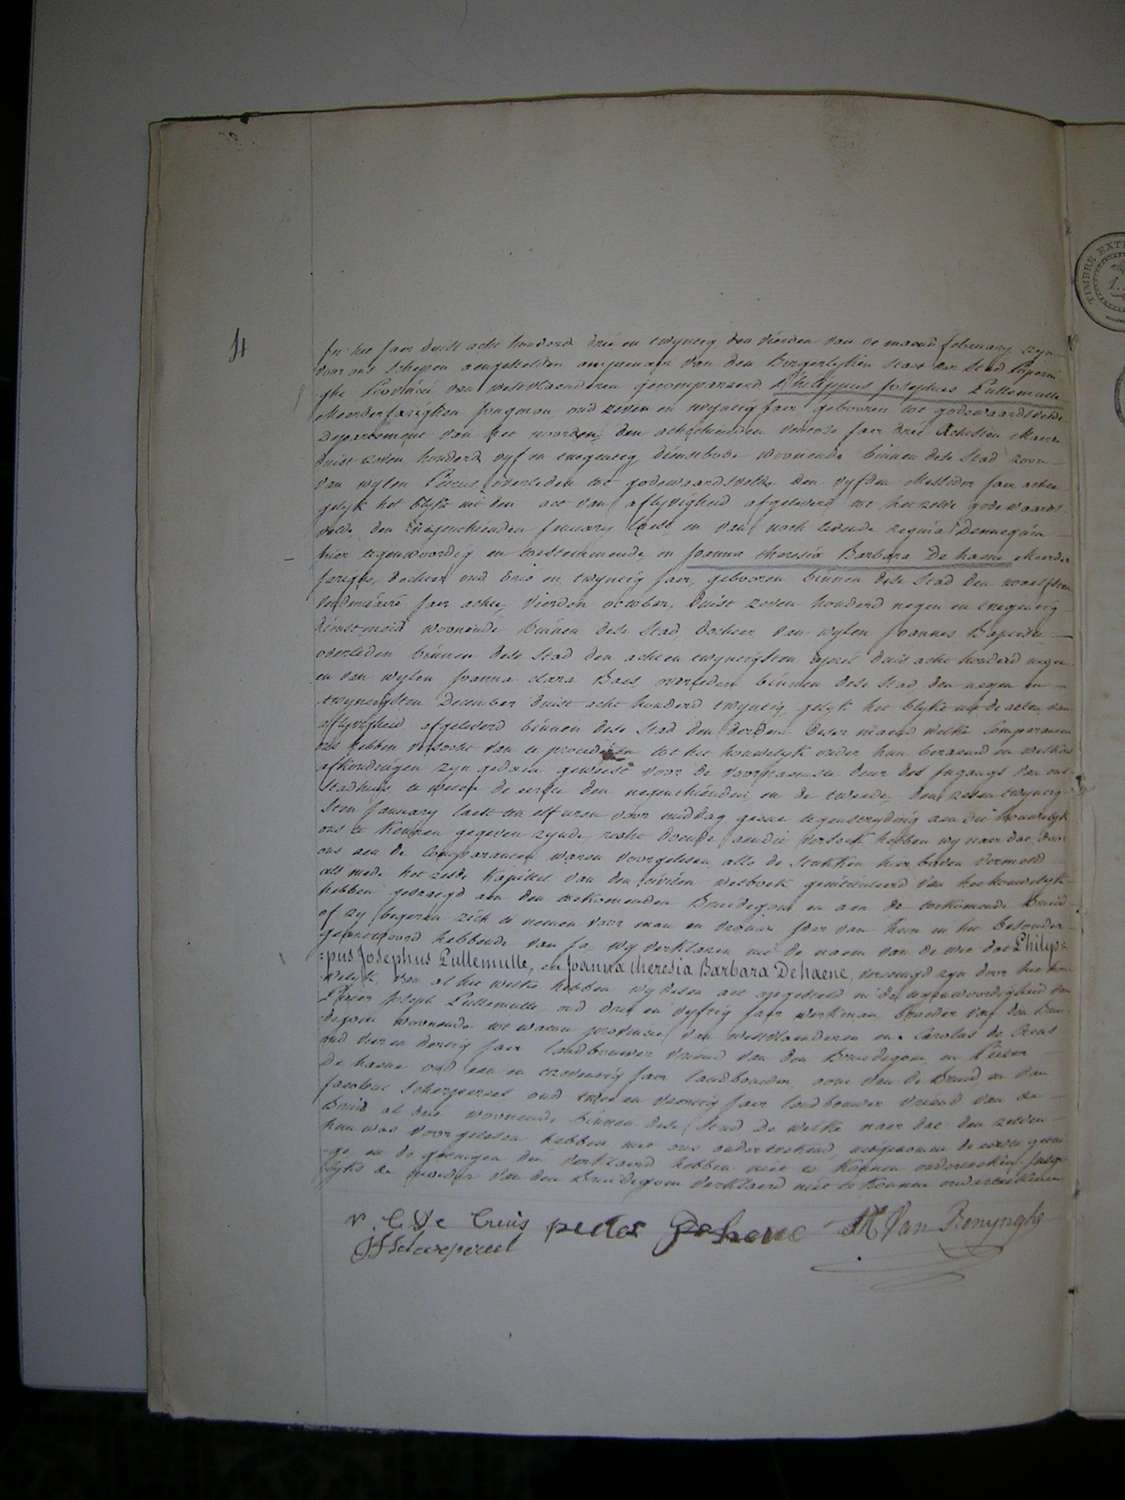 4
In het Jaer duist acht honderd drie en twyntig den vierden van de maend february zyn
voor ons schepen aengestelden amptenaer van den Burgerlyken Staet der Stad Poperin-
ghe Provincie van westvlaenderen gecompareerd Philippus Josephus Pullemulle
Meerderjarighen Jongman oud zeven en twyntig Jaer gebooren tot godewaersvelde
Departement van het noorden, den achthienden ventose Jaer drie Achtsten Maert
duist zeven honderd vyf en tnegentig dienstbode woonende binnen dese Stad zoon
van wylen Pieter overleden tot godewaersvelde den vyfden Messidor Jaer
gelyk het blykt uit den act van aflyvigheid afgeleverd tot het zelve godewaers-
velde den January laest en van noch levende Regina Dennequin
hier tegenwoordig en toestemmende en Joanna theresia Barbara De haene Meerder
Jarige, dochter oud drie en twyntig Jaer, gebooren binnen dese Stad den twaelfsten
vendemiaire Jaer acht, vierden october, duist zeven honderd negen en tnegentig
dienstmeid woonende binnen dese Stad, dochter van wylen Joannes Baptiste
overleden binnen dese Stad den acht en twyntigsten april duist acht honderd negen
en van wylen Joanna clara Baes overleden binnen dese Stad, den negen en
twyntigsten December duist acht honderd twyntig gelyk het blykt uit de acten van
aflyvigheid afgeleverd binnen dese Stad den derden deser maend welke Comparanten
ons hebben versocht van te procederen tot het houwelyk onder hun beraemd en welkers
afkondingen zyn gedaen geweest voor de voornaemste deur des Ingangs van ons
Stadhuis, te weten de eerste den negenthienden en de tweede, den zesen twyntig-
sten January laest ten elf uren voor middag geene tegenstryding aen die houwelyk
ons te kennen gegeven zynde, recht doende aen die versoek hebben wy naer dat door
ons aen de Comparanten waren voorgelesen alle de Stukken hier boven vermeld
als mede het zesde kapittel van den civilen wetboek geintituleerd van het houwelyk
hebben gevraegd aen den toekomenden Bruidegom en aen de toekomende Bruid
of zy begeren zich te nemen voor man en vrouw Ider van hem in het besonder
geantwoord hebbende van Ja, wy verklaren uit de naem van de wet dat Philip-
pus Josephus Pullemulle, en Joanna theresia Barbara Dehaene, vereenigd zyn door het hou-
welyk, van al het welke hebben wy desen act opgesteld in de tegenwoordigheid van
Pieter Joseph Pullemulle oud drie en vyftig Jaer werkman, broeder van den Brui-
degom woonende tot watou provincie van westvlaenderen en Carolus de Creus
oud vier en dertig Jaer landbouwer vriend van den Bruidegom en Pieter
De haene oud een en tzeventig Jaer landbouwer, oom van de Bruid en van
Jacobus Scherpereel oud twee en veertig Jaer landbouwer vriend van de
Bruid al drie woonende binnen dese Stad De welke naer dat den zelven
hun was voorgelesen hebben met ons onderteekend uitgenomen de eerste getui-
ge en de getuigen die verklaerd hebben niet te konnen onderteeken Insge-
lyks de moeder van den Bruidegom verklaerd niet te konnen onderteekenen
C. De Creus pieter Dehaene M Van Renynghe
J Scherpereel
TIMBRE EXT